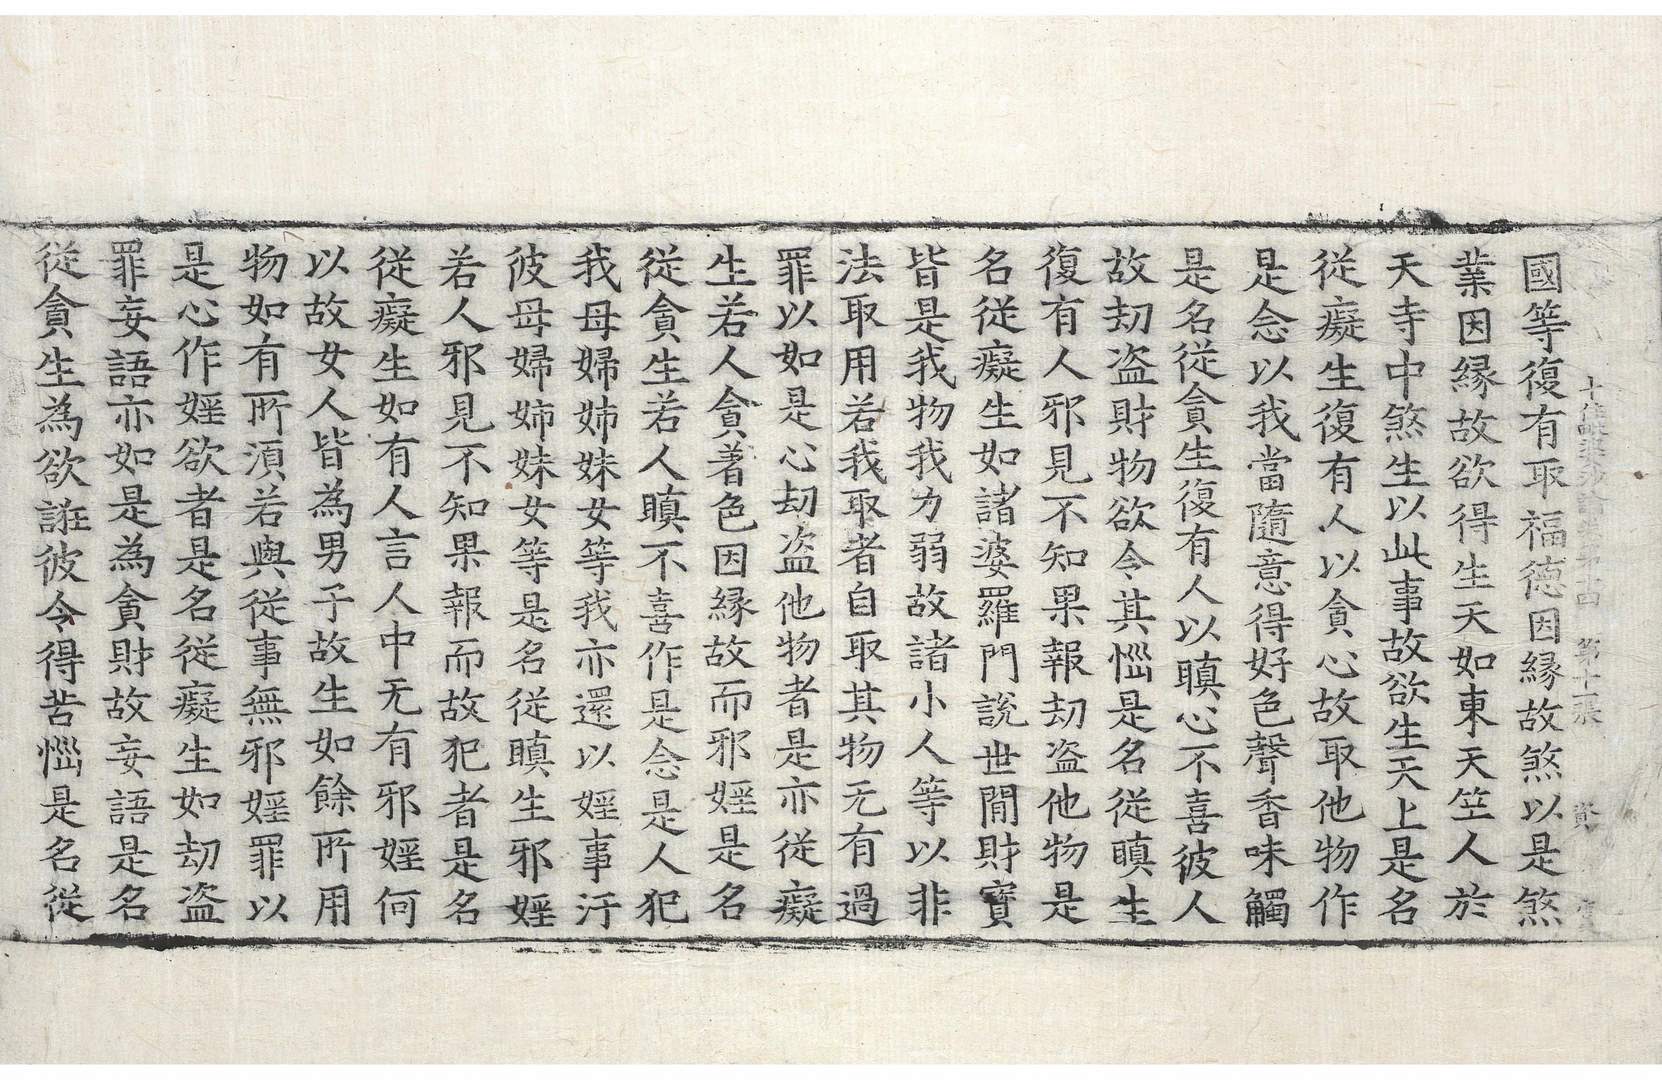 十住毗婆沙論卷第十四 第十二張
國等復有取福德因縁故煞以是煞
業因縁故欲得生天如東天竺人於
天寺中煞生以此事故欲生天上是名
從癡生復有人以貪心故取他物作
是念以我當隨意得好色聲香味觸
是名從貪生復有人以瞋心不喜彼人
故劫盗財物欲令其惱是名從瞋生
復有人邪見不知果報劫盗他物是
名從癡生如諸婆羅門說世閒財寶
皆是我物我力弱故諸小人等以非
法取用若我取者自取其物无有過
罪以如是心劫盗他物者是亦從癡
生若人貪著色因縁故而邪婬是名
從貪生若人瞋不喜作是念是人犯
我母婦姉妹女等我亦還以婬事汙
彼母婦姉妹女等是名從瞋生邪婬
若人邪見不知果報而故犯者是名
從癡生如有人言人中无有邪婬何
以故女人皆為男子故生如餘所用
物如有所湏若與從事無邪婬罪以
是心作婬欲者是名從癡生如劫盗
罪妄語亦如是為貪財故妄語是名
從貪生為欲誑彼令得苦惱是名從